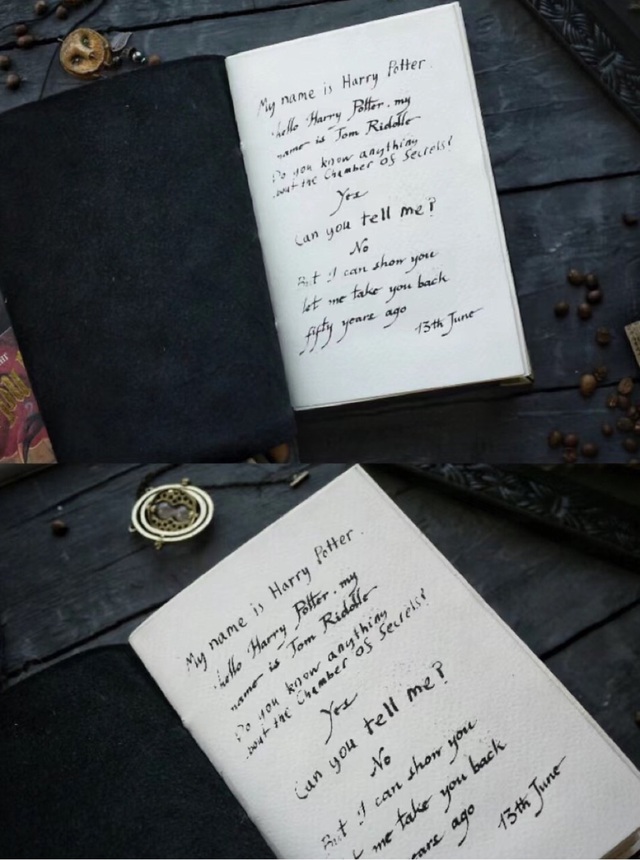 My name is Harry Potter.
hello Harry Potter. my
name is Tom Riddle
Do you know anything
about the Chamber Of Secrets?
Yes
Can you tell me?
No
But I can show you
let me take you back
fifty years ago
13th June
My name is Harry Potter.
hello Harry Potter. my
name is Tom Riddle
Do you know anything
about the Chamber Of Secrets?
Yes
Can you tell me?
No
But I can show you
me take you back
ears ago
13th June